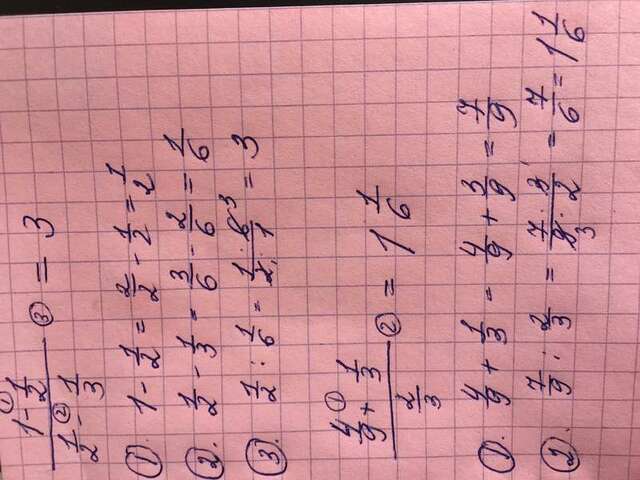 1 - 1/2 ①
1/2 - 1/3 ② ③ = 3
①. 1 - 1/2 = 2/2 - 1/2 = 1/2
②. 1/2 - 1/3 = 3/6 - 2/6 = 1/6
③. 1/2 : 1/6 = 1 · 6 3 / 2 1 · 1 = 3
4/9 + 1/3 ①
2/3 ② = 1 1/6
①. 4/9 + 1/3 = 4/9 + 3/9 = 7/9
②. 7/9 : 2/3 = 7 · 3 1 / 9 3 · 2 = 7/6 = 1 1/6